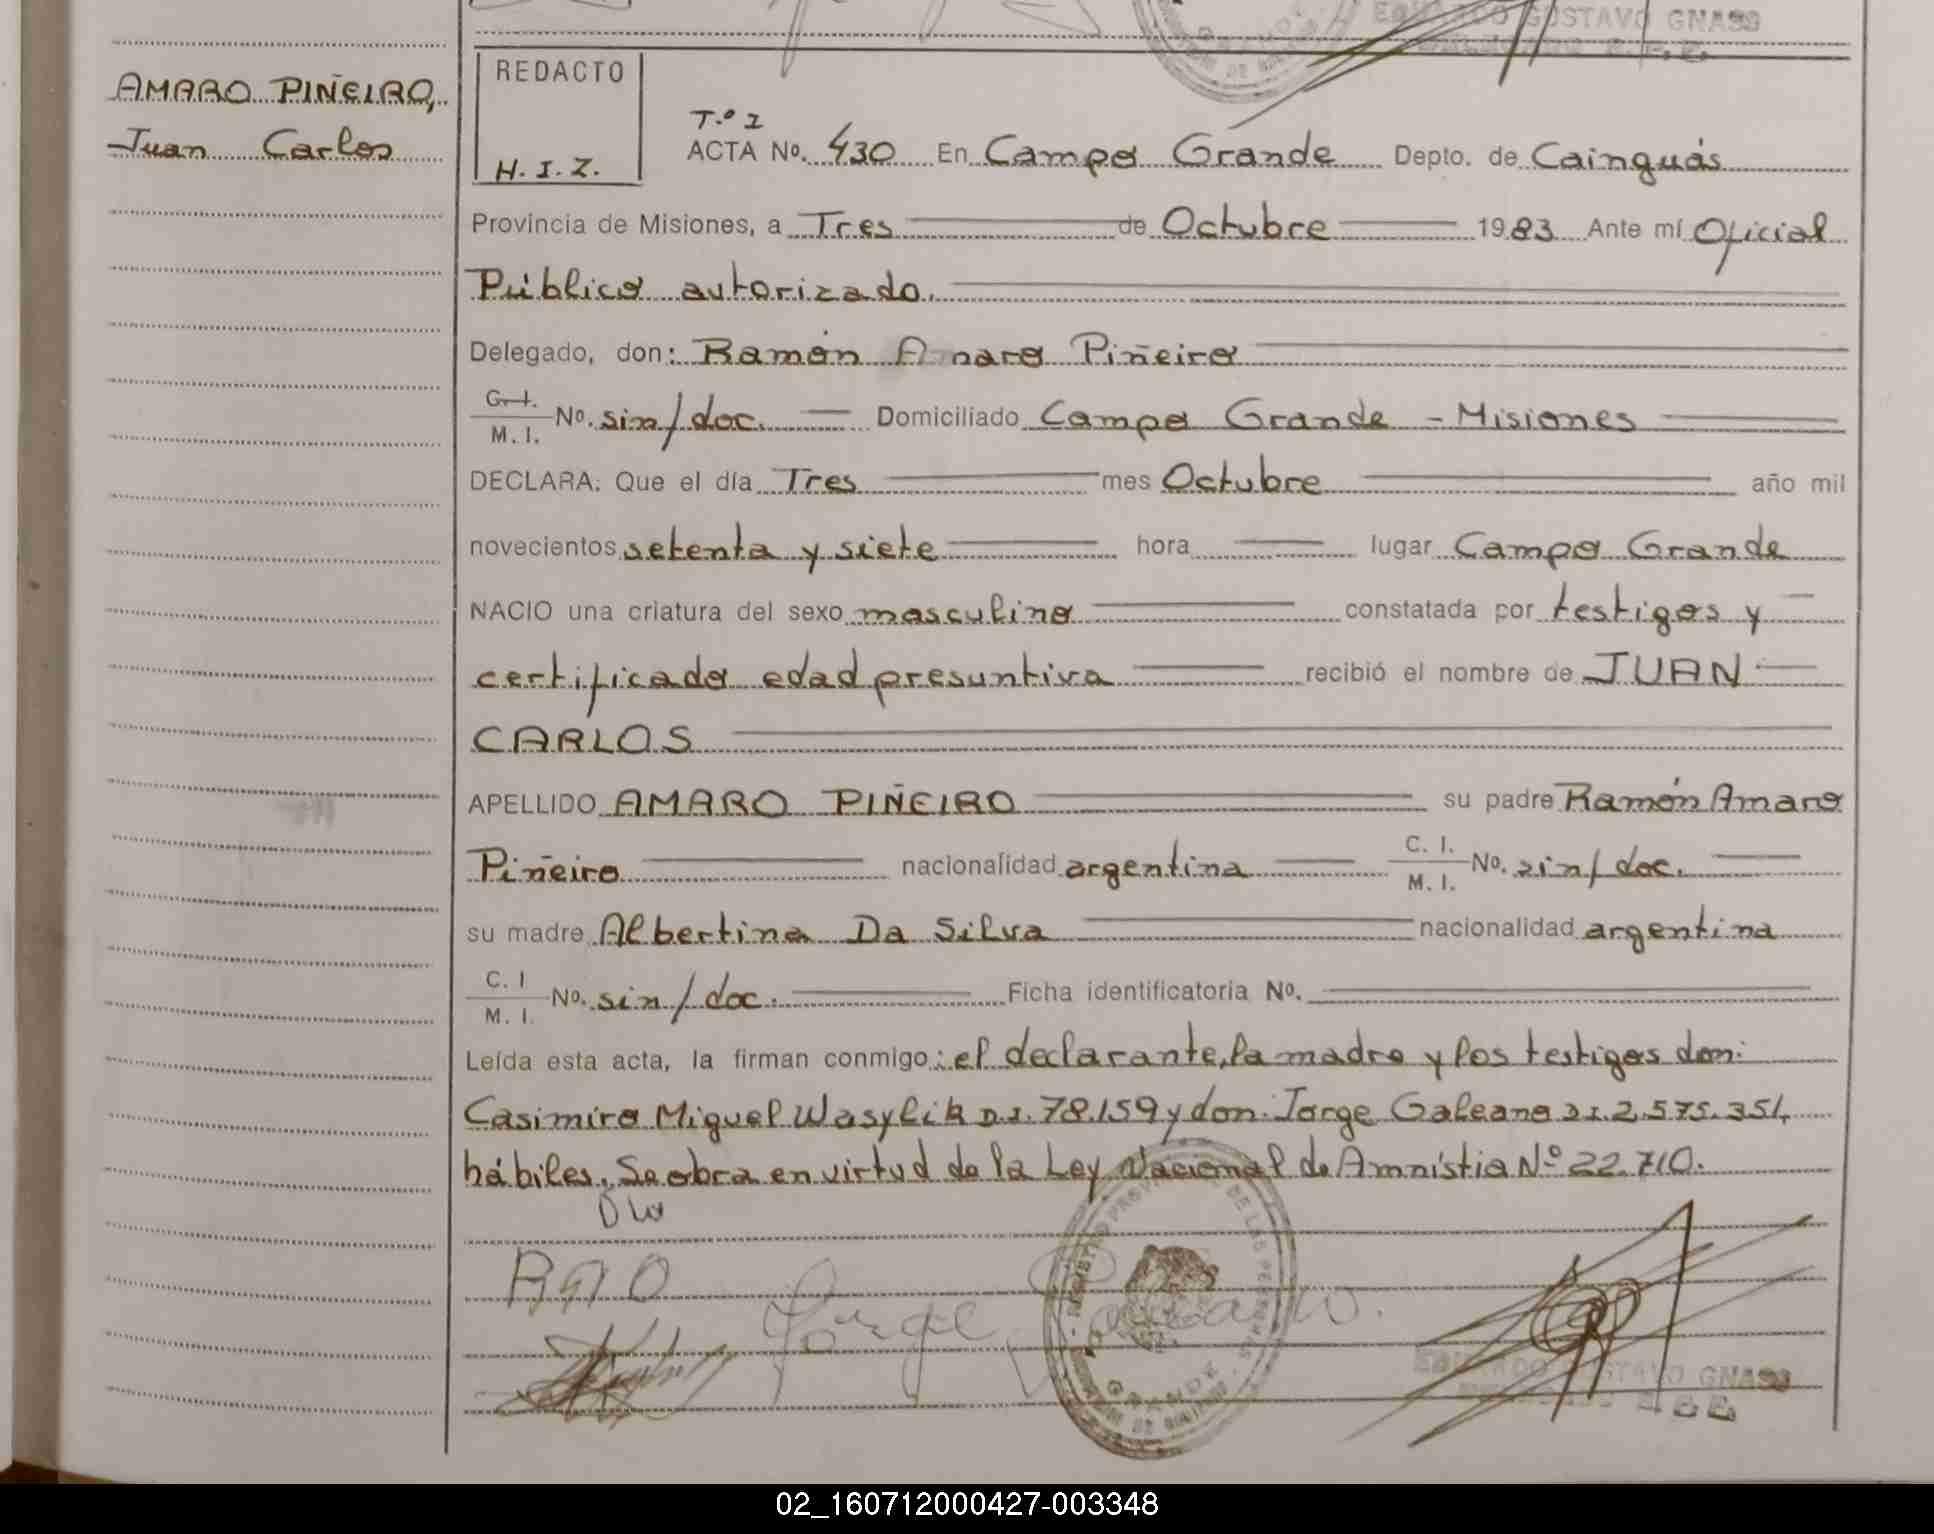 EDUARDO GUSTAVO GNASS
AMARO PIÑEIRO,
Juan Carlos
REDACTO
H. I. Z.
T.º I
ACTA Nº. 430 En Campo Grande Depto. de Cainguás
Provincia de Misiones, a Tres de Octubre 1983 Ante mí Oficial
Público autorizado.
Delegado, don: Ramón Amaro Piñeiro
C. I.
M. I. Nº. sin/doc. Domiciliado Campo Grande - Misiones
DECLARA: Que el día Tres mes Octubre año mil
novecientos setenta y siete hora lugar Campo Grande
NACIO una criatura del sexo masculino constatada por testigos y
certificado edad presuntiva recibió el nombre de JUAN
CARLOS
APELLIDO AMARO PIÑEIRO su padre Ramón Amaro
Piñeiro nacionalidad argentina C. I.
M. I. Nº. sin/doc.
su madre Albertina Da Silva nacionalidad argentina
C. I
M. I. Nº. sin/doc. Ficha identificatoria Nº.
Leída esta acta, la firman conmigo: el declarante, la madre y los testigos don:
Casimiro Miguel Wasylik D.I. 78.159 y don: Jorge Galeano D.I. 2.575.354,
hábiles. Se obra en virtud de la Ley Nacional de Amnistía Nº 22.710.
Jorge
GRANDE
EDUARDO GUSTAVO GNASS
02_160712000427-003348